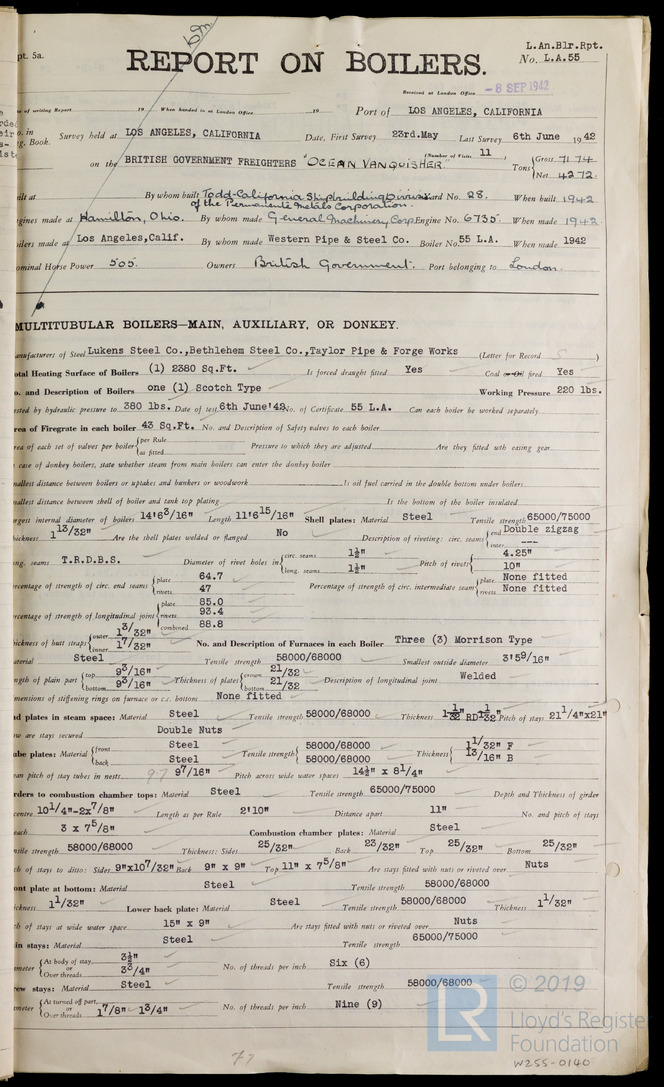 L.An.Blr.Rpt.
pt. 5a.
No. L.A.55
REPORT ON BOILERS.
Received at London Office - 8 SEP 1942
of writing Report 19 When handed in at London Office 19 Port of LOS ANGELES, CALIFORNIA
o. in
g. Book. Survey held at LOS ANGELES, CALIFORNIA Date, First Survey 23rd.May Last Survey 6th June 1942
(Number of Visits 11
on the BRITISH GOVERNMENT FREIGHTERS "OCEAN VANQUISHER. Tons {Gross 7174
{Net 4272.
ilt at By whom built Todd-California Shipbuilding Division Yard No. 28. When built 1942
of the Permanente Metals Corporation.
gines made at Hamilton, Ohio. By whom made General Machinery Corp. Engine No. 6735. When made 1942.
oilers made at Los Angeles,Calif. By whom made Western Pipe & Steel Co. Boiler No. 55 L.A. When made 1942
ominal Horse Power 505. Owners British Government. Port belonging to London.
MULTITUBULAR BOILERS—MAIN, AUXILIARY, OR DONKEY.
anufacturers of Steel Lukens Steel Co.,Bethlehem Steel Co.,Taylor Pipe & Forge Works (Letter for Record S )
otal Heating Surface of Boilers (1) 2380 Sq.Ft. Is forced draught fitted Yes Coal or Oil fired Yes
o. and Description of Boilers one (1) Scotch Type Working Pressure 220 lbs.
ested by hydraulic pressure to 380 lbs. Date of test 6th June'42 No. of Certificate 55 L.A. Can each boiler be worked separately
rea of Firegrate in each boiler 43 Sq.Ft. No. and Description of Safety valves to each boiler
rea of each set of valves per boiler {per Rule {as fitted Pressure to which they are adjusted Are they fitted with easing gear
case of donkey boilers, state whether steam from main boilers can enter the donkey boiler
mallest distance between boilers or uptakes and bunkers or woodwork Is oil fuel carried in the double bottom under boilers
mallest distance between shell of boiler and tank top plating Is the bottom of the boiler insulated
argest internal diameter of boilers 14'6 3/16" Length 11'6 15/16" Shell plates: Material Steel Tensile strength 65000/75000
hickness 1 13/32" Are the shell plates welded or flanged No Description of riveting: circ. seams {end Double zigzag
{inter. ---
ng. seams T.R.D.B.S. Diameter of rivet holes in {circ. seams 1½" Pitch of rivets { 4.25"
{long. seams 1½" 10"
rcentage of strength of circ. end seams {plate 64.7 {rivets 47 Percentage of strength of circ. intermediate seam {plate None fitted {rivets None fitted
rcentage of strength of longitudinal joint {plate 85.0
{rivets 93.4
{combined 88.8
hickness of butt straps {outer 1 3/32" {inner 1 7/32" No. and Description of Furnaces in each Boiler Three (3) Morrison Type
aterial Steel Tensile strength 58000/68000 Smallest outside diameter 3'5 9/16"
ngth of plain part {top 9 3/16" {bottom 9 3/16" Thickness of plates {crown 21/32 {bottom 21/32 Description of longitudinal joint Welded
mensions of stiffening rings on furnace or c.c. bottom None fitted
nd plates in steam space: Material Steel Tensile strength 58000/68000 Thickness 1 1/32 RD 1 1/32 Pitch of stays 21 1/4"x21"
ow are stays secured Double Nuts
ube plates: Material {front Steel {back Steel Tensile strength { 58000/68000 58000/68000 Thickness { 1 1/32" F 13/16" B
ean pitch of stay tubes in nests 9 7/16" Pitch across wide water spaces 14½" x 8 1/4"
rders to combustion chamber tops: Material Steel Tensile strength 65000/75000 Depth and Thickness of girder
centre 10 1/4"-2x7/8" Length as per Rule 2'10" Distance apart 11" No. and pitch of stays
each 3 x 7 5/8" Combustion chamber plates: Material Steel
nsile strength 58000/68000 Thickness: Sides 25/32" Back 23/32" Top 25/32" Bottom 25/32"
ch of stays to ditto: Sides 9"x10 7/32" Back 9" x 9" Top 11" x 7 5/8" Are stays fitted with nuts or riveted over Nuts
ont plate at bottom: Material Steel Tensile strength 58000/68000
ickness 1 1/32" Lower back plate: Material Steel Tensile strength 58000/68000 Thickness 1 1/32"
ch of stays at wide water space 15" x 9" Are stays fitted with nuts or riveted over Nuts
in stays: Material Steel Tensile strength 65000/75000
ameter {At body of stay, or Over threads 3½" 3 3/4" No. of threads per inch Six (6)
rew stays: Material Steel Tensile strength 58000/68000
ameter {At turned off part, or Over threads 1 7/8" 1 3/4" No. of threads per inch Nine (9)
LR © 2019
Lloyd's Register
Foundation
W255-0140